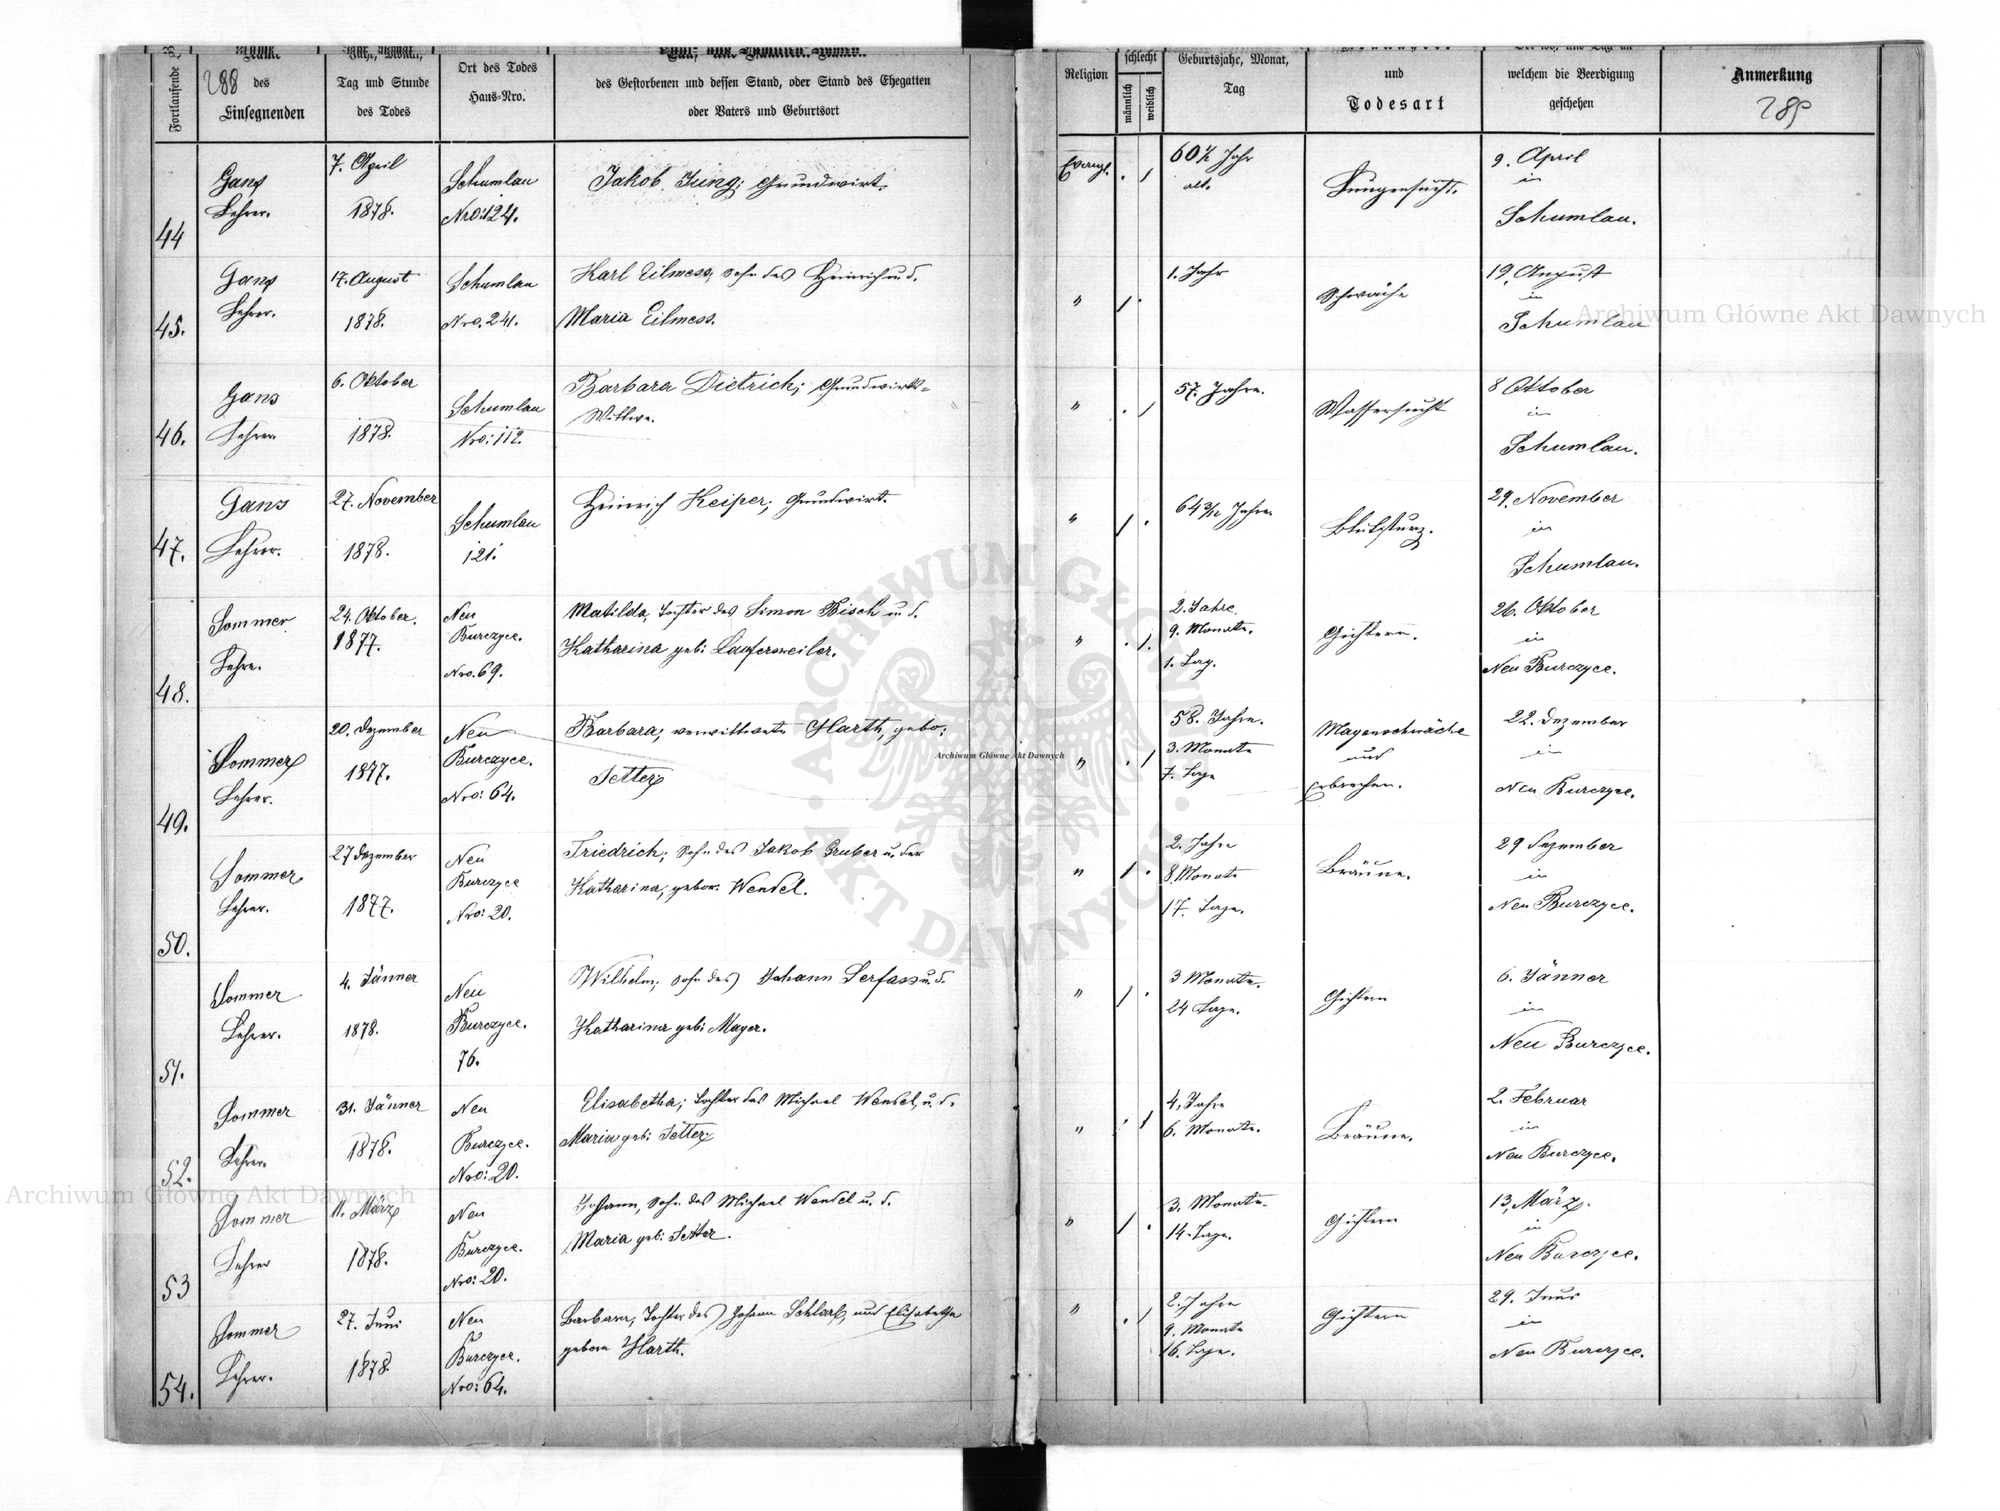 Fortlaufende
288
des
Einsegnenden
Jahr, Monat,
Tag und Stunde
des Todes
Ort des Todes
Haus-Nro.
des Gestorbenen und dessen Stand, oder Stand des Ehegatten
oder Vaters und Geburtsort
Religion
schlecht
männlich
weiblich
Geburtsjahr, Monat,
Tag
und
Todesart
welchem die Beerdigung
geschehen
Anmerkung
289
44
Gans
Lehrer.
7. April
1878.
Schumlau
Nro: 124.
Jakob Jung; Grundwirt.
Evangl.
60½ Jahr
alt.
Lungensucht.
9. April
in
Schumlau.
45.
Gans
Lehrer.
17. August
1878.
Schumlau
Nro. 241.
Karl Eilmess, Sohn des Heinrich u. d.
Maria Eilmess.
"
1. Jahr
Schwäche
19. August
in
Schumlau
46.
Gans
Lehrer.
6. Oktober
1878.
Schumlau
Nro: 112.
Barbara Dietrich; Grundwirts-
Wittwe.
"
57. Jahre.
Wassersucht
8 Oktober
in
Schumlau.
47.
Gans
Lehrer.
27. November
1878.
Schumlau
121.
Heinrich Keiper; Grundwirt.
"
64 3/12 Jahre.
Blutsturz.
29. November
in
Schumlau.
48.
Sommer
Lehre.
24. Oktober.
1877.
Neu
Burczyce.
Nro. 69.
Matilda, Tochter des Simon Bisch u. d.
Katharina geb: Laufersweiler.
"
2. Jahre.
9. Monate.
1. Tag.
Gichtern.
26. Oktober
in
Neu Burczyce.
49.
Sommer
Lehrer.
20. Dezember
1877.
Neu
Burczyce.
Nro: 64.
Barbara; verwittwete Harth, gebo:
Jetter
"
58. Jahre.
3. Monate
7. Tage
Magenschwäche
und
Erbrechen.
22. Dezember
in
Neu Burczyce.
50.
Sommer
Lehrer.
27 Dezember
1877.
Neu
Burczyce
Nro: 20.
Friedrich; Sohn des Jakob Gruber u. der
Katharina, gebor. Wendel.
"
2. Jahre
8. Monate
17. Tage.
Bräune.
29 Dezember
in
Neu Burczyce.
51.
Sommer
Lehrer.
4. Jänner
1878.
Neu
Burczyce.
76.
Wilhelm; Sohn des Johann Serfass u. d.
Katharina geb: Mayer.
"
3 Monate.
24 Tage.
Gichtern
6. Jänner
in
Neu Burczyce.
52.
Sommer
Lehrer.
31. Jänner
1878.
Neu
Burczyce.
Nro: 20.
Elisabetha; Tochter des Michael Wendel, u. d.
Maria geb: Jetter
"
4. Jahre
6. Monate.
Bräune.
2. Februar
in
Neu Burczyce.
53
Sommer
Lehrer
11. März
1878.
Neu
Burczyce.
Nro: 20.
Johann, Sohn des Michael Wendel u. d.
Maria geb: Jetter.
"
3. Monate.
14. Tage.
Gichtern
13. März.
in
Neu Burczyce.
54.
Sommer
Lehrer.
27. Juni
1878.
Neu
Burczyce.
Nro: 64.
Barbara, Tochter des Johann Schlarb, und Elisabetha
geborn Harth.
"
2. Jahre
9. Monate
16. Tage.
Gichtern
29. Juni
in
Neu Burczyce.
Archiwum Główne Akt Dawnych
Archiwum Główne Akt Dawnych
Archiwum Główne Akt Dawnych
ARCHIWUM GŁÓWNE · AKT DAWNYCH ·